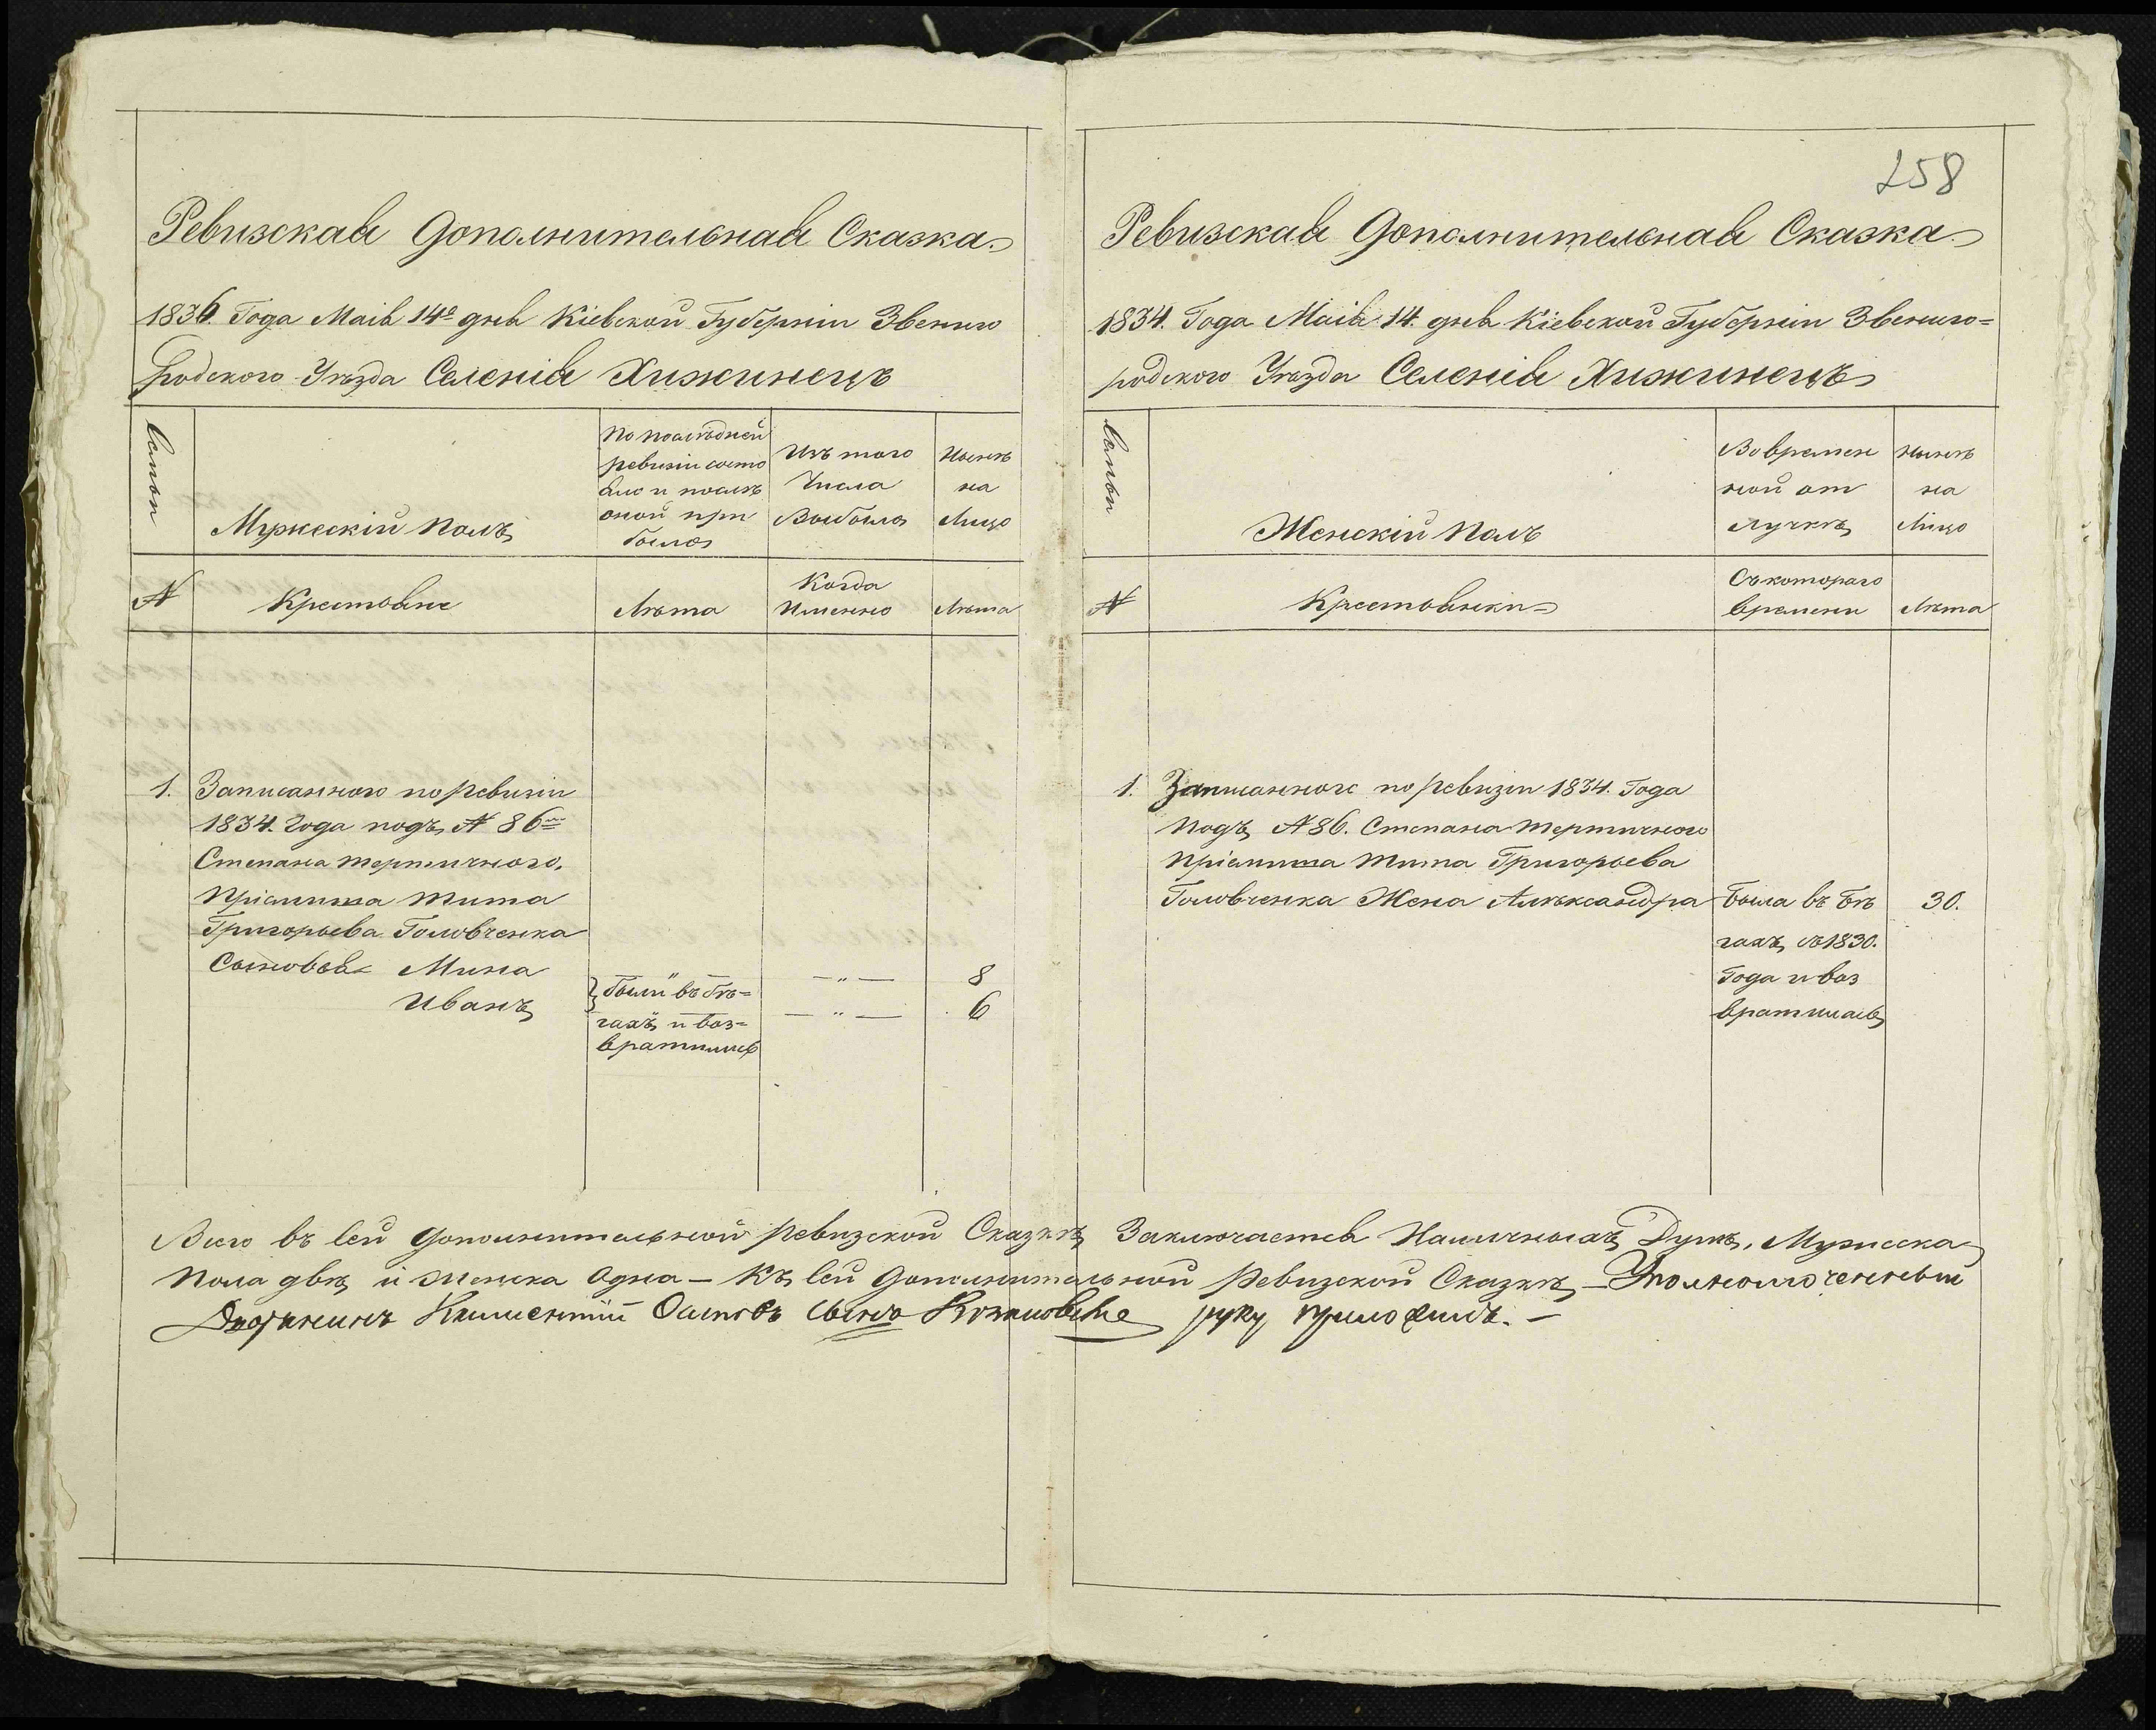 Ревизская Дополнительная Сказка
1836. Года Маія 14го дня Кіевской Губерніи Звениго
родского Уѣзда Селенія Хижинецъ
Семьи
Мужескій Полъ
По послѣдней
ревизіи состо
яло и послѣ
оной при
было
Изъ того
Числа
Выбыло
Нынѣ
на
Лицо
№
Крестьяне
Лѣта
Когда
Именно
Лѣта
1. Записанного по ревизіи
1834. Года подъ № 86мъ
Степана Терпичного.
Пріймита Тита
Григорьева Головченка
Сыновья Мина
Иванъ
были въ бѣ=
гахъ и воз=
вратились
— " — 8
— " — 6
258
Ревизская Дополнительная Сказка
1834. Года Маія 14. дня Кіевской Губерніи Звениго=
родского Уѣзда Селенія Хижинецъ
Семьи
Женскій Полъ
Во времен
ной от
лучкѣ
Нынѣ
на
Лицо
№
Крестьянки
Съ котораго
времени
Лѣта
1. Записанного по ревизіи 1834. Года
Подъ № 86. Степана Терпичного
Пріймита Тита Григорьева
Головченка Жена Алѣксандра
была въ бѣ
гахъ съ 1830.
Года и воз
вратилась
30.
Всего въ сей Дополнительной ревизской Сказкѣ Заключается Наличныхъ Душъ, Мужеска
Пола двѣ и женска Одна — Къ сей Дополнительной Ревизской Сказкѣ — Уполномоченный
Дворянинъ Климентій Осиповъ Сынъ руку приложилъ. —